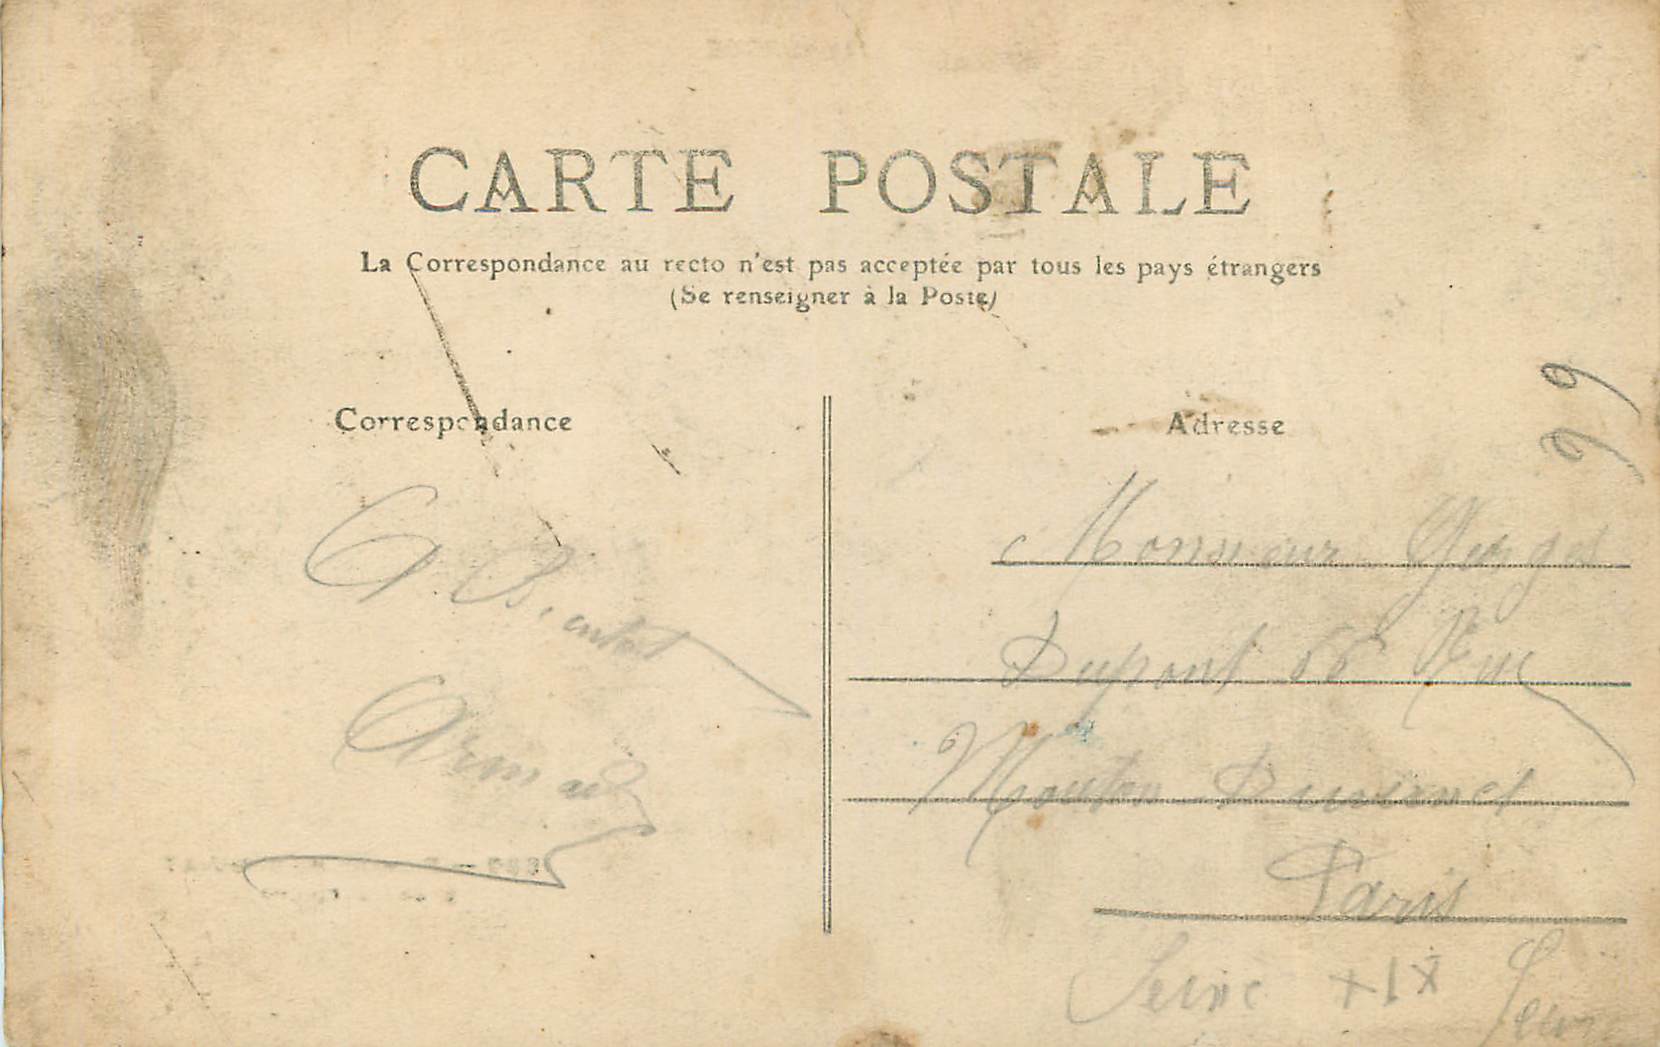 CARTE POSTALE
La Correspondance au recto n'est pas acceptée par tous les pays étrangers
(Se renseigner à la Poste)
Correspondance
A Bientot
Armand
Adresse
Monsieur Georges
Dupont 66 Rue
Mouton Duvernet
Paris
Seine